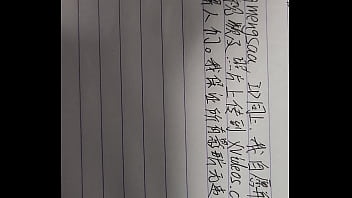 mengsaa, ID同上. 我自愿
视频及照片上传到 xvideos.c
人们。我保证所有